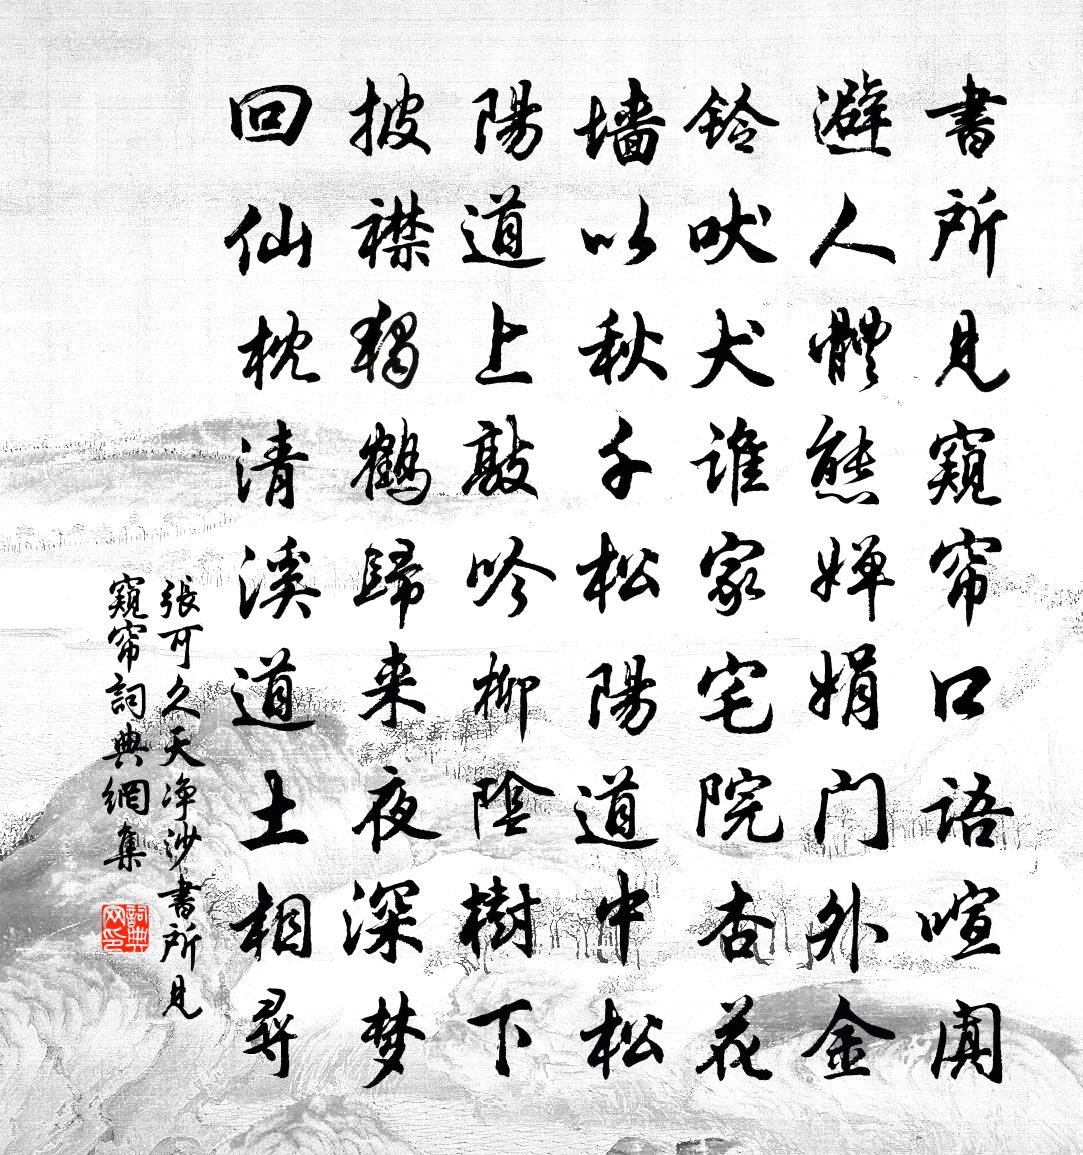 書所見窺帘口語喧闐
避人體態嬋娟门外金
鈴吠犬誰家宅院杏花
墙以秋千松陽道中松
陽道上敲吟柳陰樹下
披襟獨鶴歸来夜深梦
回仙枕清溪道土相尋
張可久天净沙書所見
窺帘詞典網集
詞典
网印